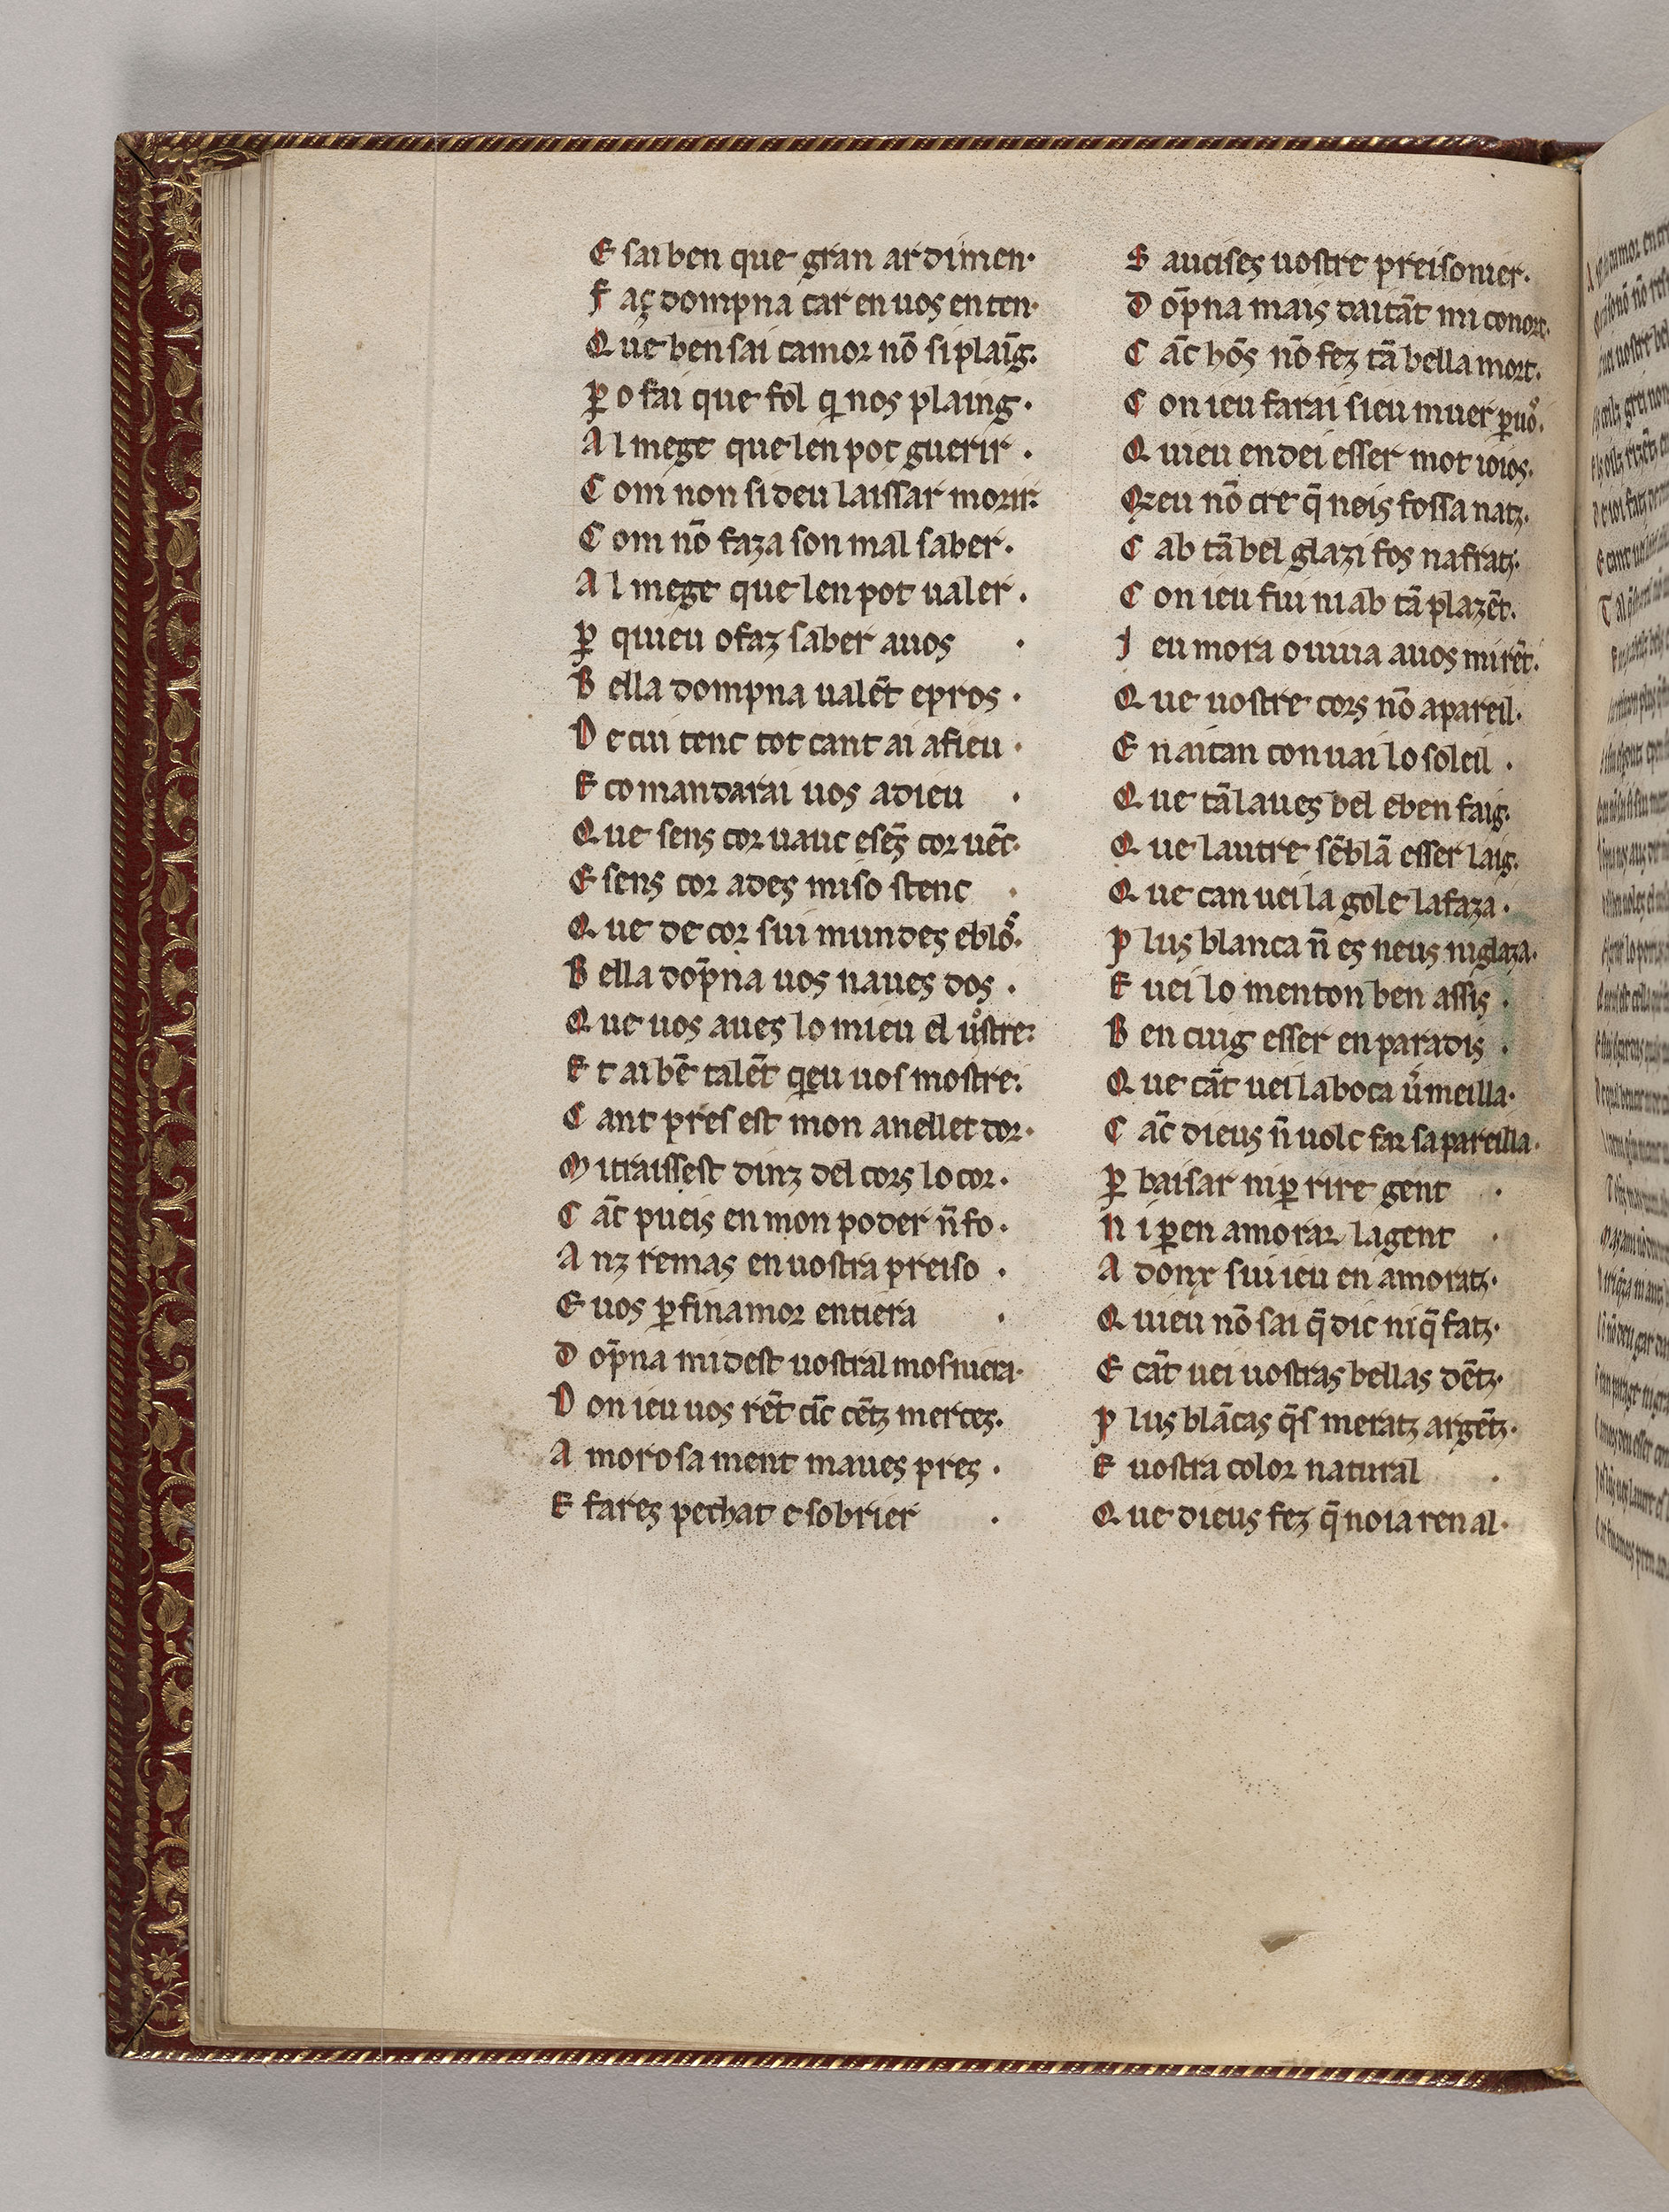 E sai ben que gran ardimen·
F aç dompna car en uos enten·
Q ue ben sai camor nō si plaīg·
p̱ o fai que fol qi nos plaing·
A l mege que len pot guerir·
C om non si deu laissar morir·
C om nō faza son mal saber·
A l mege que len pot ualer·
p̱ quieu o faz saber auos·
B ella dompna ualēt e pros·
D e cui tenc tot cant ai a fieu·
E comandarai uos a dieu·
Q ue sens cor uauc e sēs cor uēc·
E sens cor ades mi sostenc·
Q ue de cor sui mundes e blos·
B ella dop̄na uos naues dos·
Q ue uos aues lo mieu el uostre·
E t ai bē talēt qeu uos mostre·
C ant pres est mon anellet dor·
M i traissest dinz del cors lo cor·
C āc pueis en mon poder n̄ fo·
A nz remas en uostra preiso·
E uos p̱ fin amor entiera·
D op̄na mi dest uostral mosniera·
D on ieu uos rēt cīc cētz merces·
A morosament maues pres·
E fares pechat e sobrier·
S aucises uostre preisonier·
D op̄na mais daitāt mi conort·
C āc hōs nō fez tā bella mort·
C on ieu farai sieu muer p̱ uos·
Q uieu en dei esser mot ioios·
Q ieu nō cre q̄ neis fossa natz·
C ab tā bel glazi fos nafratz·
C on ieu fui ni ab tā plazēt·
I eu mora o uiuia auos mirēt·
Q ue uostre cors nō apareil·
E n aitan con uai lo soleil·
Q ue tā laues bel e ben faig·
Q ue lautre sēblā esser laig·
Q ue can uei la gole la faza·
P lus blanca n̄ es neus ni glaza·
E uei lo menton ben assis·
B en cuig esser en paradis·
Q ue cāt uei la boca u̓meilla·
C āc dieus n̄ uolc far sa pareilla·
p̱ baisar ni p̱ rire gent·
N i p̱ enamorar la gent·
A donx sui ieu enamoratz·
Q uieu nō sai q̄ dic ni q̄ fatz·
E cāt uei uostras bellas dētz·
P lus blācas q̄s meratz argētz·
E uostra color natural·
Q ue dieus fez q̄ noia ren al·